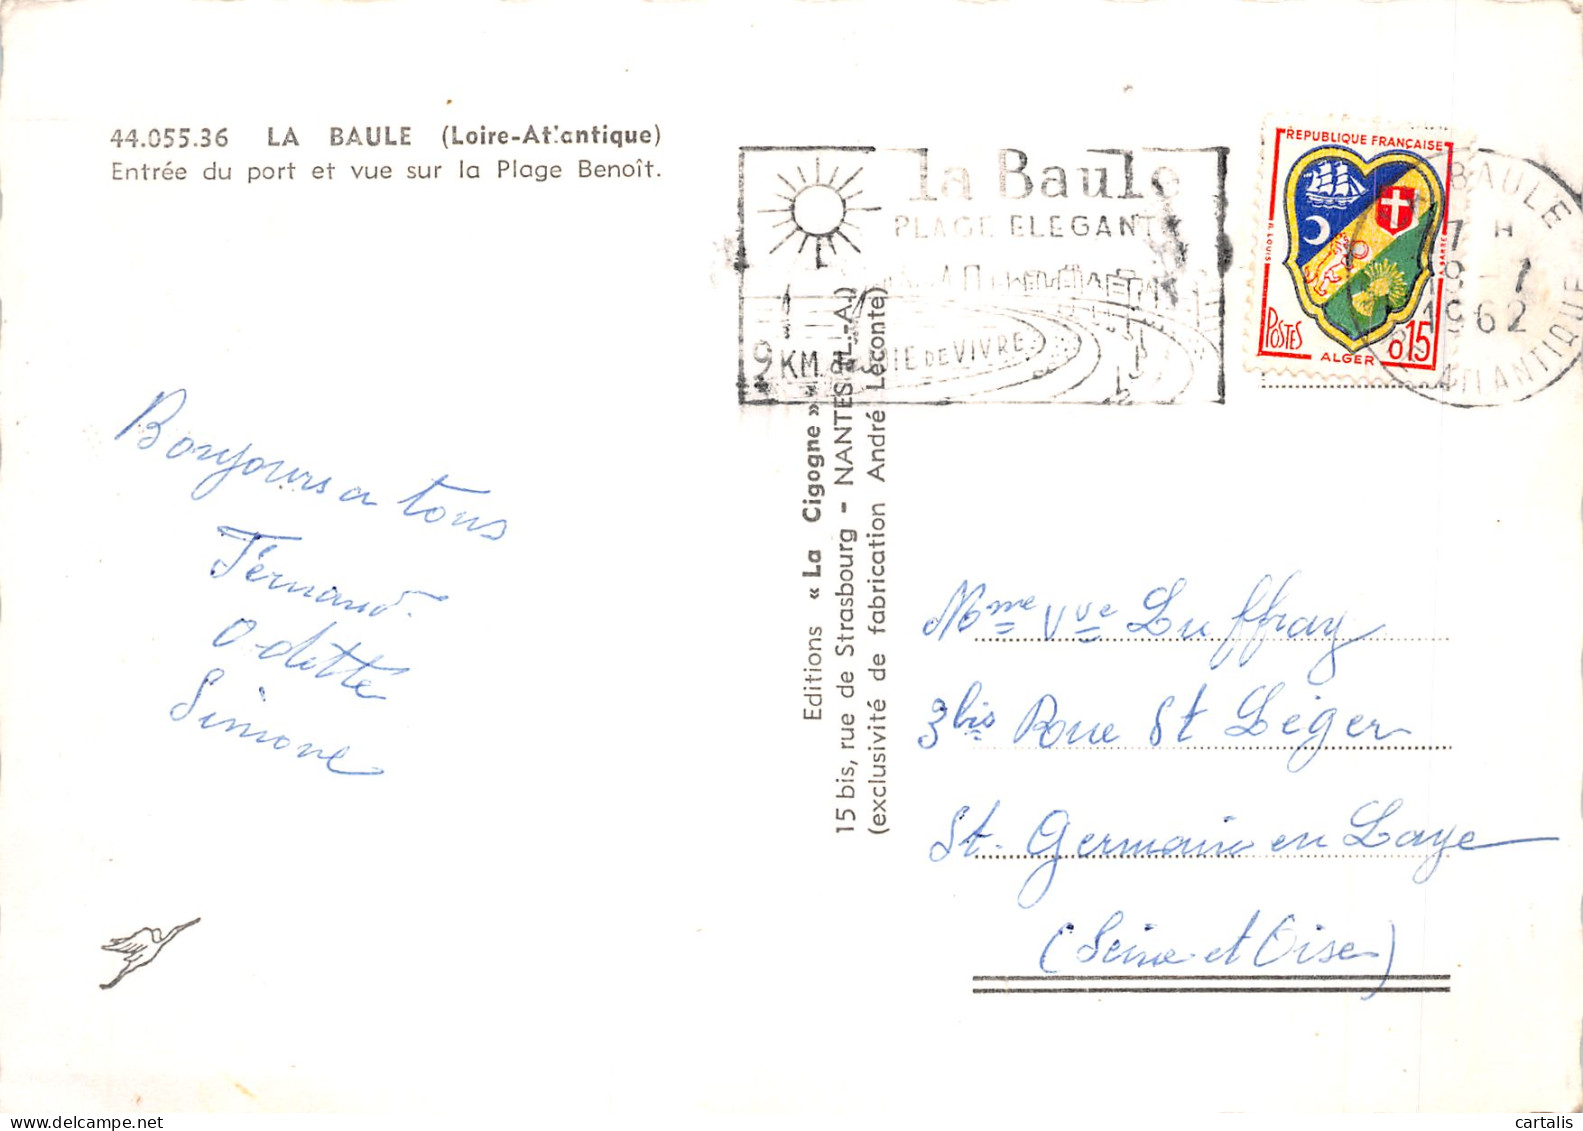 44.055.36 LA BAULE (Loire-Atlantique)
Entrée du port et vue sur la Plage Benoît.
la Baule
PLAGE ELEGANTE
9 KM DE VIVRE
REPUBLIQUE FRANÇAISE
POSTES
ALGER
0,15
BAULE
17 H
1962
ATLANTIQUE
Bonjours a tous
Fernand.
Odette
Simone
Editions « La Cigogne »
15 bis, rue de Strasbourg - NANTES (L.-A.)
(exclusivité de fabrication André Leconte)
Mme Vve Luffray
3 bis Rue St Léger
St. Germain en Laye
(Seine et Oise)
cartalis